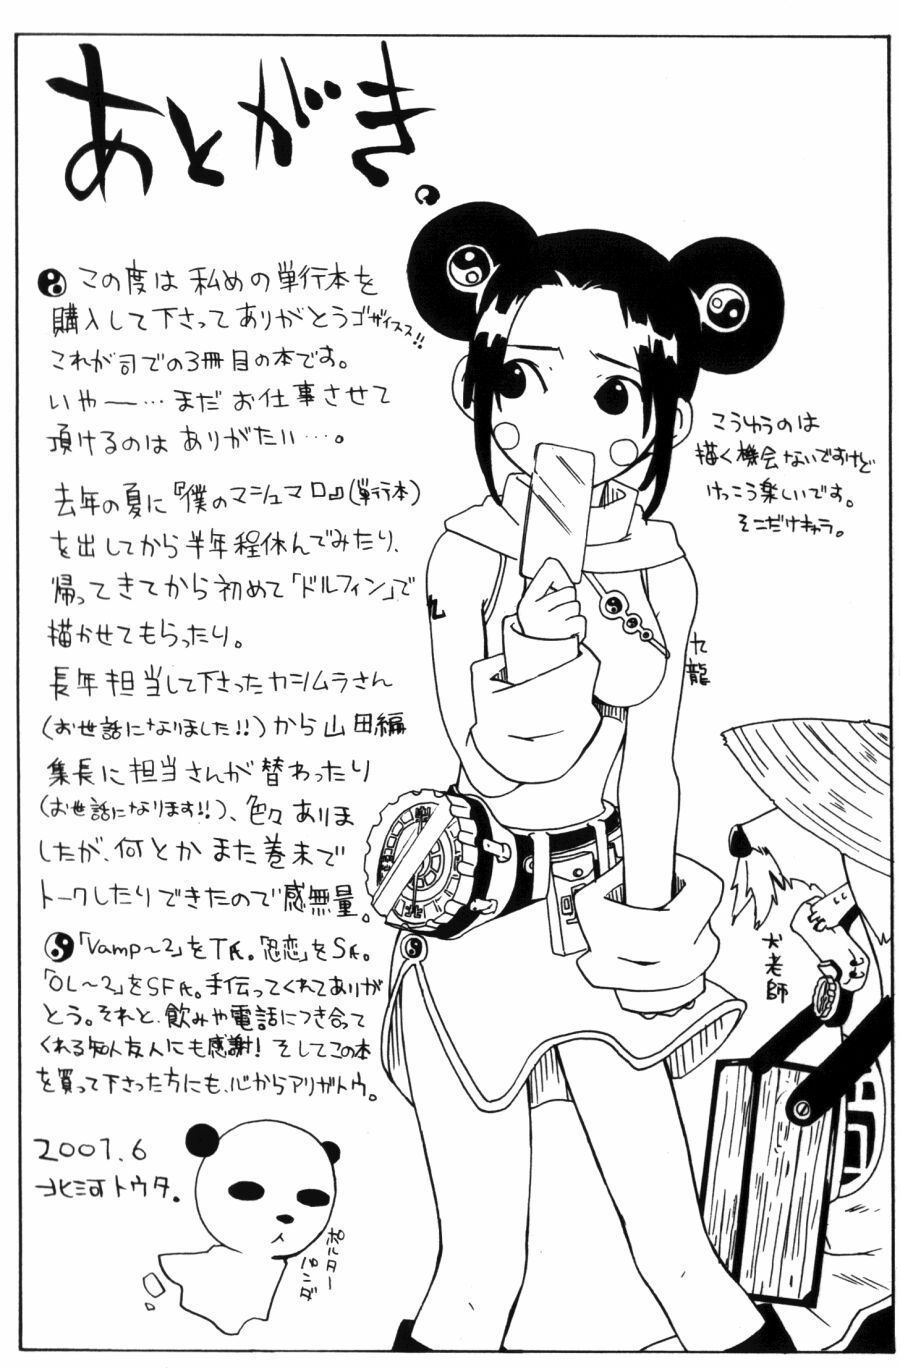 あとがき。
この度は私めの単行本を
購入して下さってありがとうゴザイスス!!
これが司での3冊目の本です。
いやー…まだお仕事させて
頂けるのはありがたい…。
去年の夏に『僕のマシュマロ』(単行本)
を出してから半年程休んでみたり、
帰ってきてから初めて「ドルフィン」で
描かせてもらったり。
長年担当して下さったカシムラさん
(お世話になりました!!)から山田編
集長に担当さんが替わったり
(お世話になります!!)、色々ありま
したが、何とかまた巻末で
トークしたりできたので感無量。
「Vamp~2」をTK。「忍恋」をSK。
「OL~2」をSFK。手伝ってくれてありが
とう。それと、飲みや電話につき合って
くれる知人友人にも感謝! そしてこの本
を買って下さった方にも、心からアリガトウ。
2007.6
北河トウタ。
ポルター
パンダ
こうゆうのは
描く機会ないですけど
けっこう楽しいです。
そこだけキャラ。
九龍
犬老師